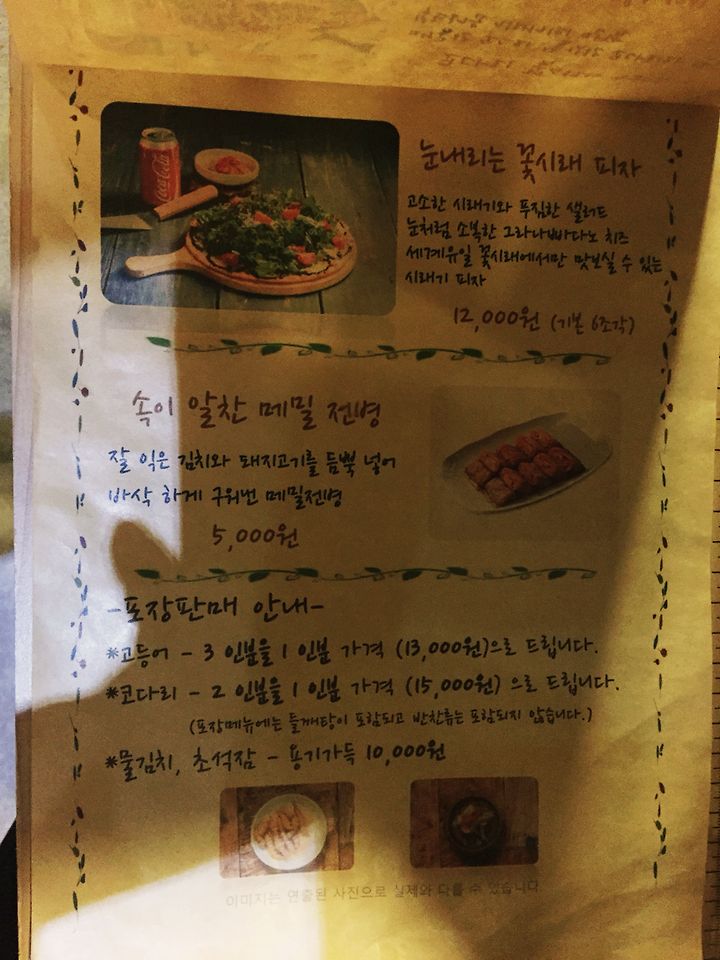 Coca-Cola
눈내리는 꽃시래 피자
고소한 시래기와 푸짐한 샐러드
눈처럼 소복한 그라나빠다노 치즈
세계유일 꽃시래에서만 맛보실 수 있는
시래기 피자
12,000원 (기본 6조각)
속이 알찬 메밀 전병
잘 익은 김치와 돼지고기를 듬뿍 넣어
바삭 하게 구워낸 메밀전병
5,000원
-포장판매 안내-
*고등어 - 3 인분을 1 인분 가격 (13,000원)으로 드립니다.
*코다리 - 2 인분을 1 인분 가격 (15,000원) 으로 드립니다.
(포장메뉴에는 들깨탕이 포함되고 반찬류는 포함되지 않습니다.)
*물김치, 초석잠 - 용기가득 10,000원
이미지는 연출된 사진으로 실제와 다를 수 있습니다